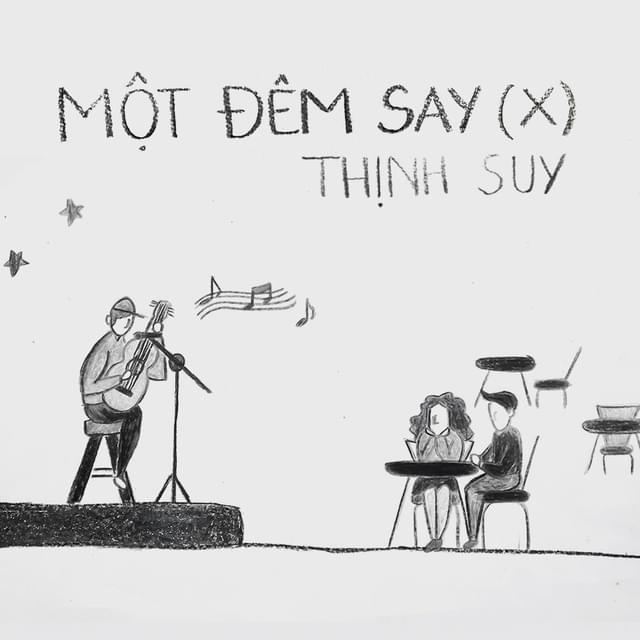 MỘT ĐÊM SAY (X)
THỊNH SUY